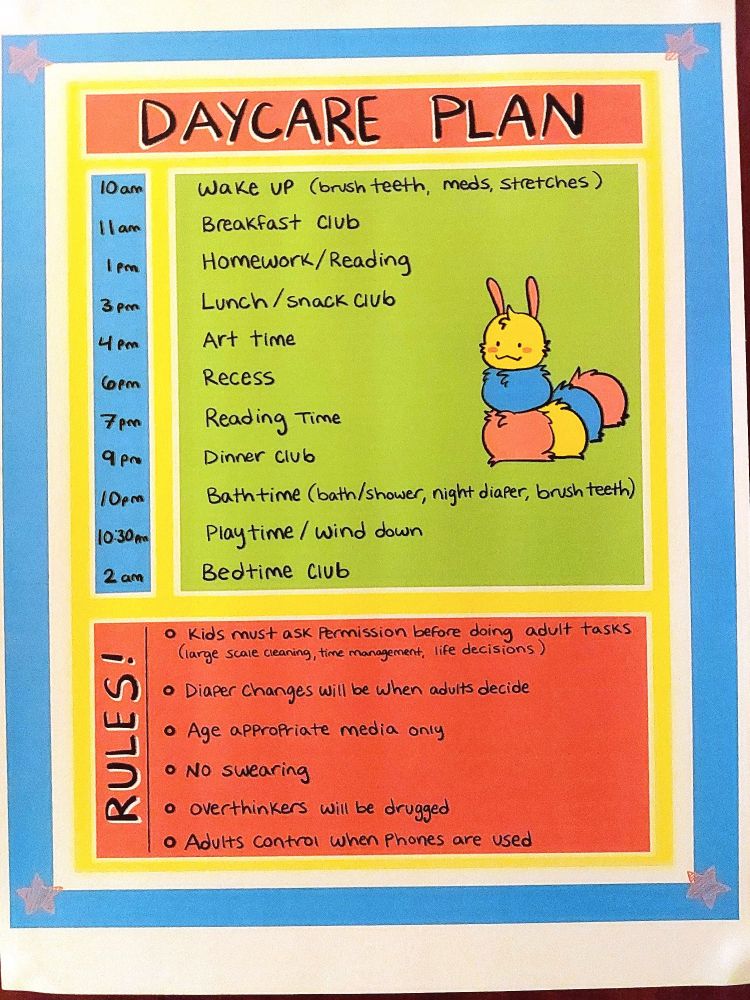 DAYCARE PLAN
10am Wake up (brush teeth, meds, stretches)
11am Breakfast Club
1pm Homework/Reading
3pm Lunch/snack club
4pm Art time
6pm Recess
7pm Reading Time
9pm Dinner club
10pm Bathtime (bath/shower, night diaper, brush teeth)
10:30pm Playtime/wind down
2am Bedtime Club
RULES!
Kids must ask permission before doing adult tasks
(large scale cleaning, time management, life decisions)
Diaper changes will be when adults decide
Age appropriate media only
No swearing
overthinkers will be drugged
Adults control when phones are used